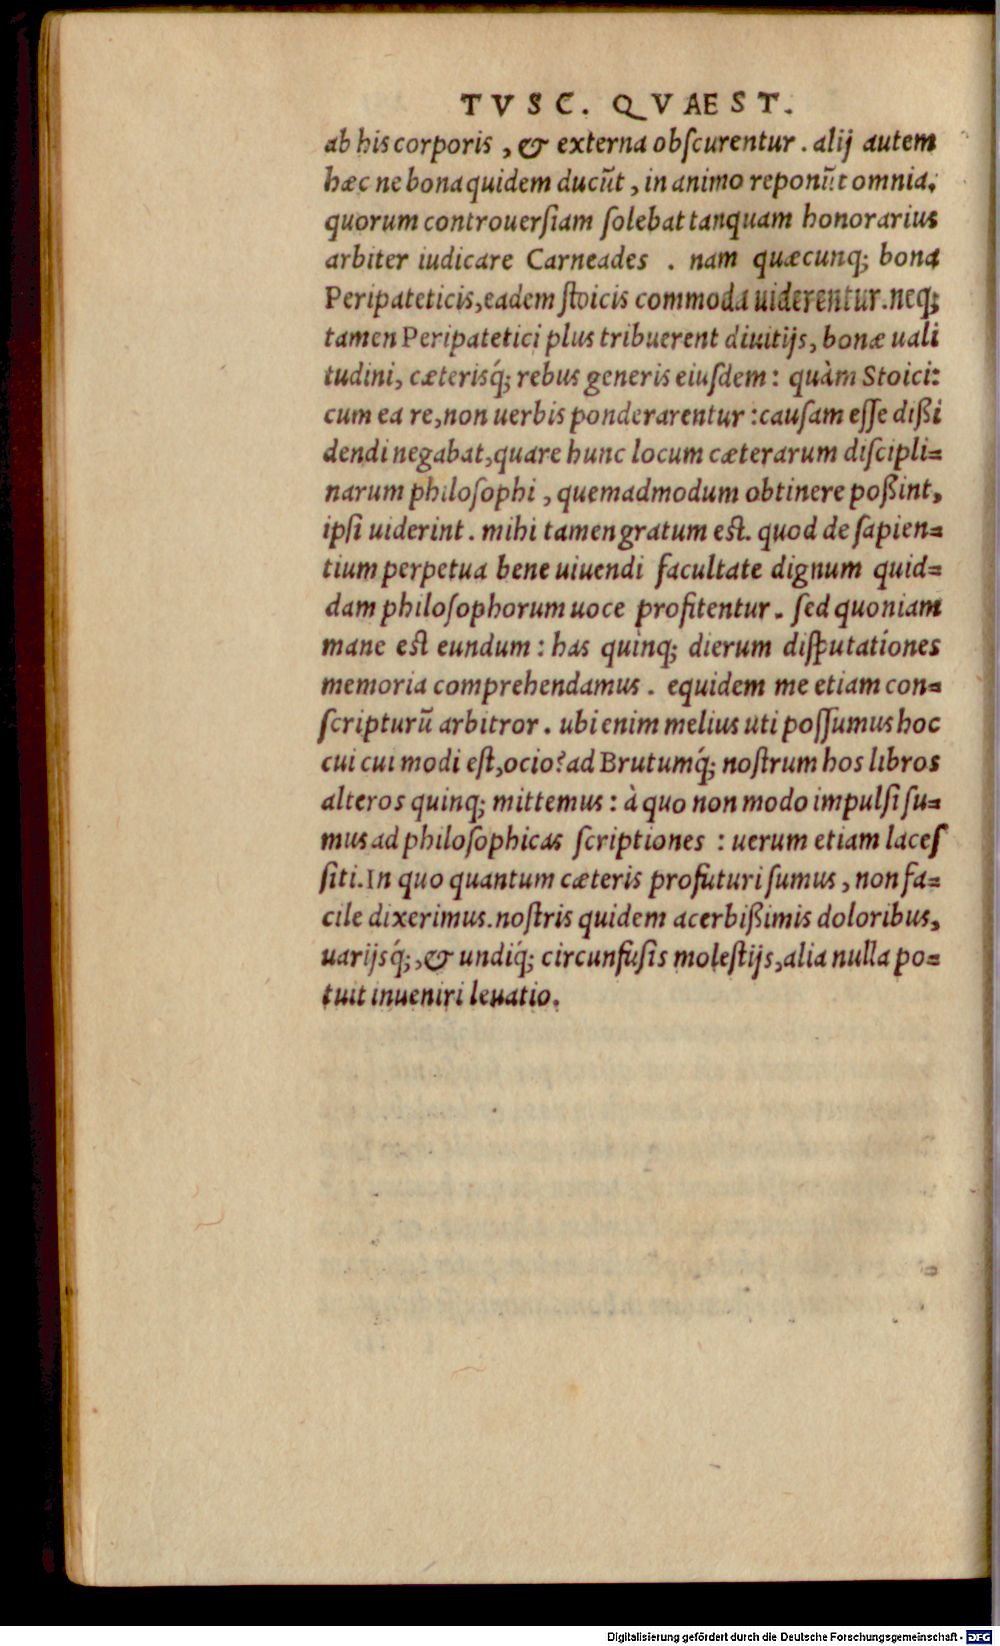 TVSC. QVAEST.
ab his corporis, & externa obſcurentur. alij autem
hæc ne bona quidem ducũt, in animo reponũt omnia.
quorum controuerſiam ſolebat tanquam honorarius
arbiter iudicare Carneades . nam quæcunq; bona
Peripateticis, eadem ſtoicis commoda uiderentur. neq;
tamen Peripatetici plus tribuerent diuitijs, bonæ uali
tudini, cæterisq́; rebus generis eiuſdem: quàm Stoici:
cum ea re, non uerbis ponderarentur: cauſam eſſe dißi
dendi negabat, quare hunc locum cæterarum diſcipli=
narum philoſophi, quemadmodum obtinere poßint,
ipſi uiderint. mihi tamen gratum eſt. quod de ſapien=
tium perpetua bene uiuendi facultate dignum quid=
dam philoſophorum uoce profitentur. ſed quoniam
mane eſt eundum: has quinq; dierum diſputationes
memoria comprehendamus. equidem me etiam con=
ſcripturũ arbitror. ubi enim melius uti poſſumus hoc
cui cui modi eſt, ocio? ad Brutumq́; noſtrum hos libros
alteros quinq; mittemus: à quo non modo impulſi ſu=
mus ad philoſophicas ſcriptiones: uerum etiam laceſ
ſiti. In quo quantum cæteris profuturi ſumus, non fa=
cile dixerimus. noſtris quidem acerbißimis doloribus,
uarijsq́;, & undiq́; circunfuſis moleſtijs, alia nulla po=
tuit inueniri leuatio.
Digitalisierung gefördert durch die Deutsche Forschungsgemeinschaft - DFG